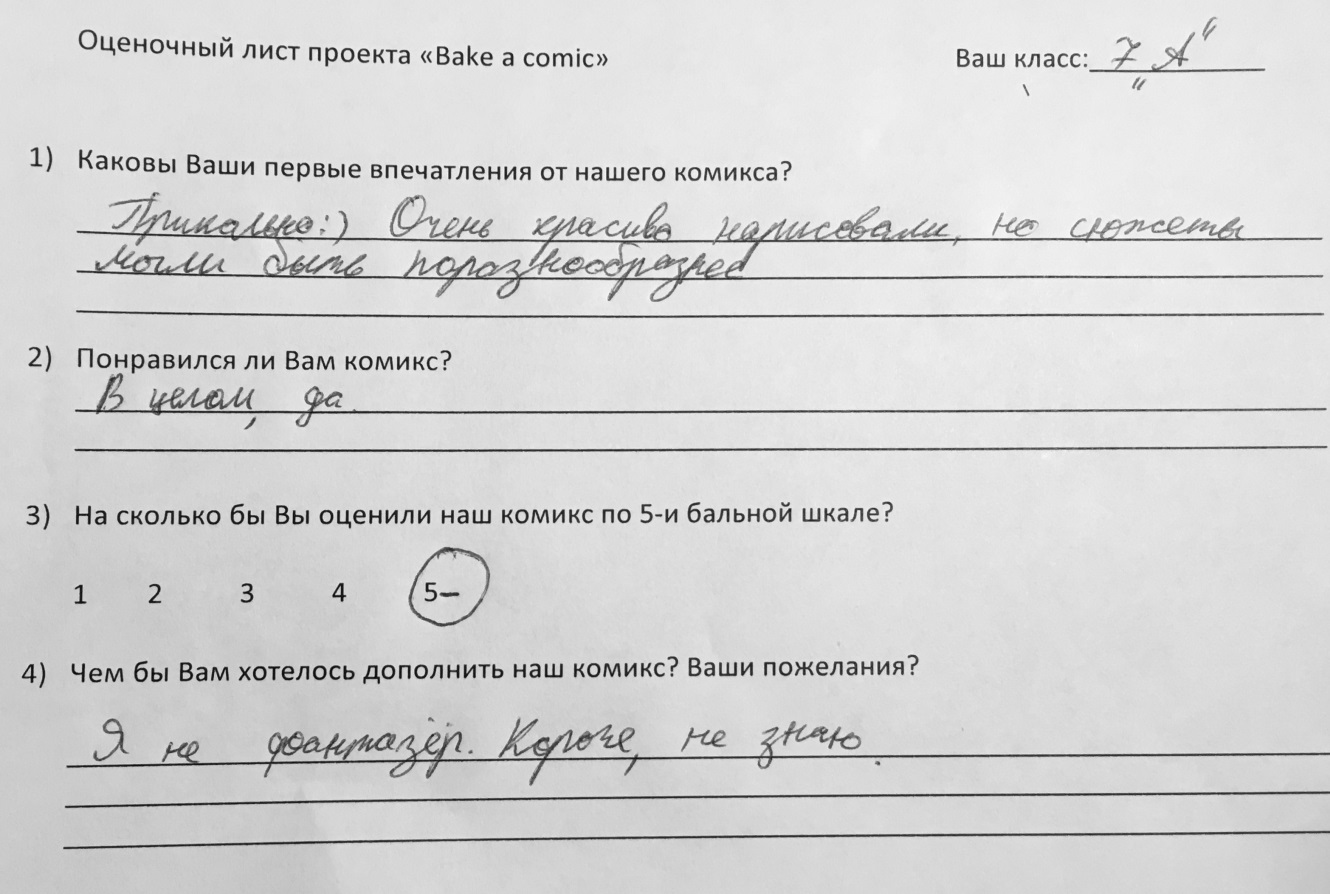 Оценочный лист проекта «Bake a comic»
Ваш класс: 7 „А“
1) Каковы Ваши первые впечатления от нашего комикса?
Прикольно:) Очень красиво нарисовали, но сюжеты
могли быть поразнообразнее
2) Понравился ли Вам комикс?
В целом, да.
3) На сколько бы Вы оценили наш комикс по 5-и бальной шкале?
1 2 3 4 5–
4) Чем бы Вам хотелось дополнить наш комикс? Ваши пожелания?
Я не фантазёр. Короче, не знаю.